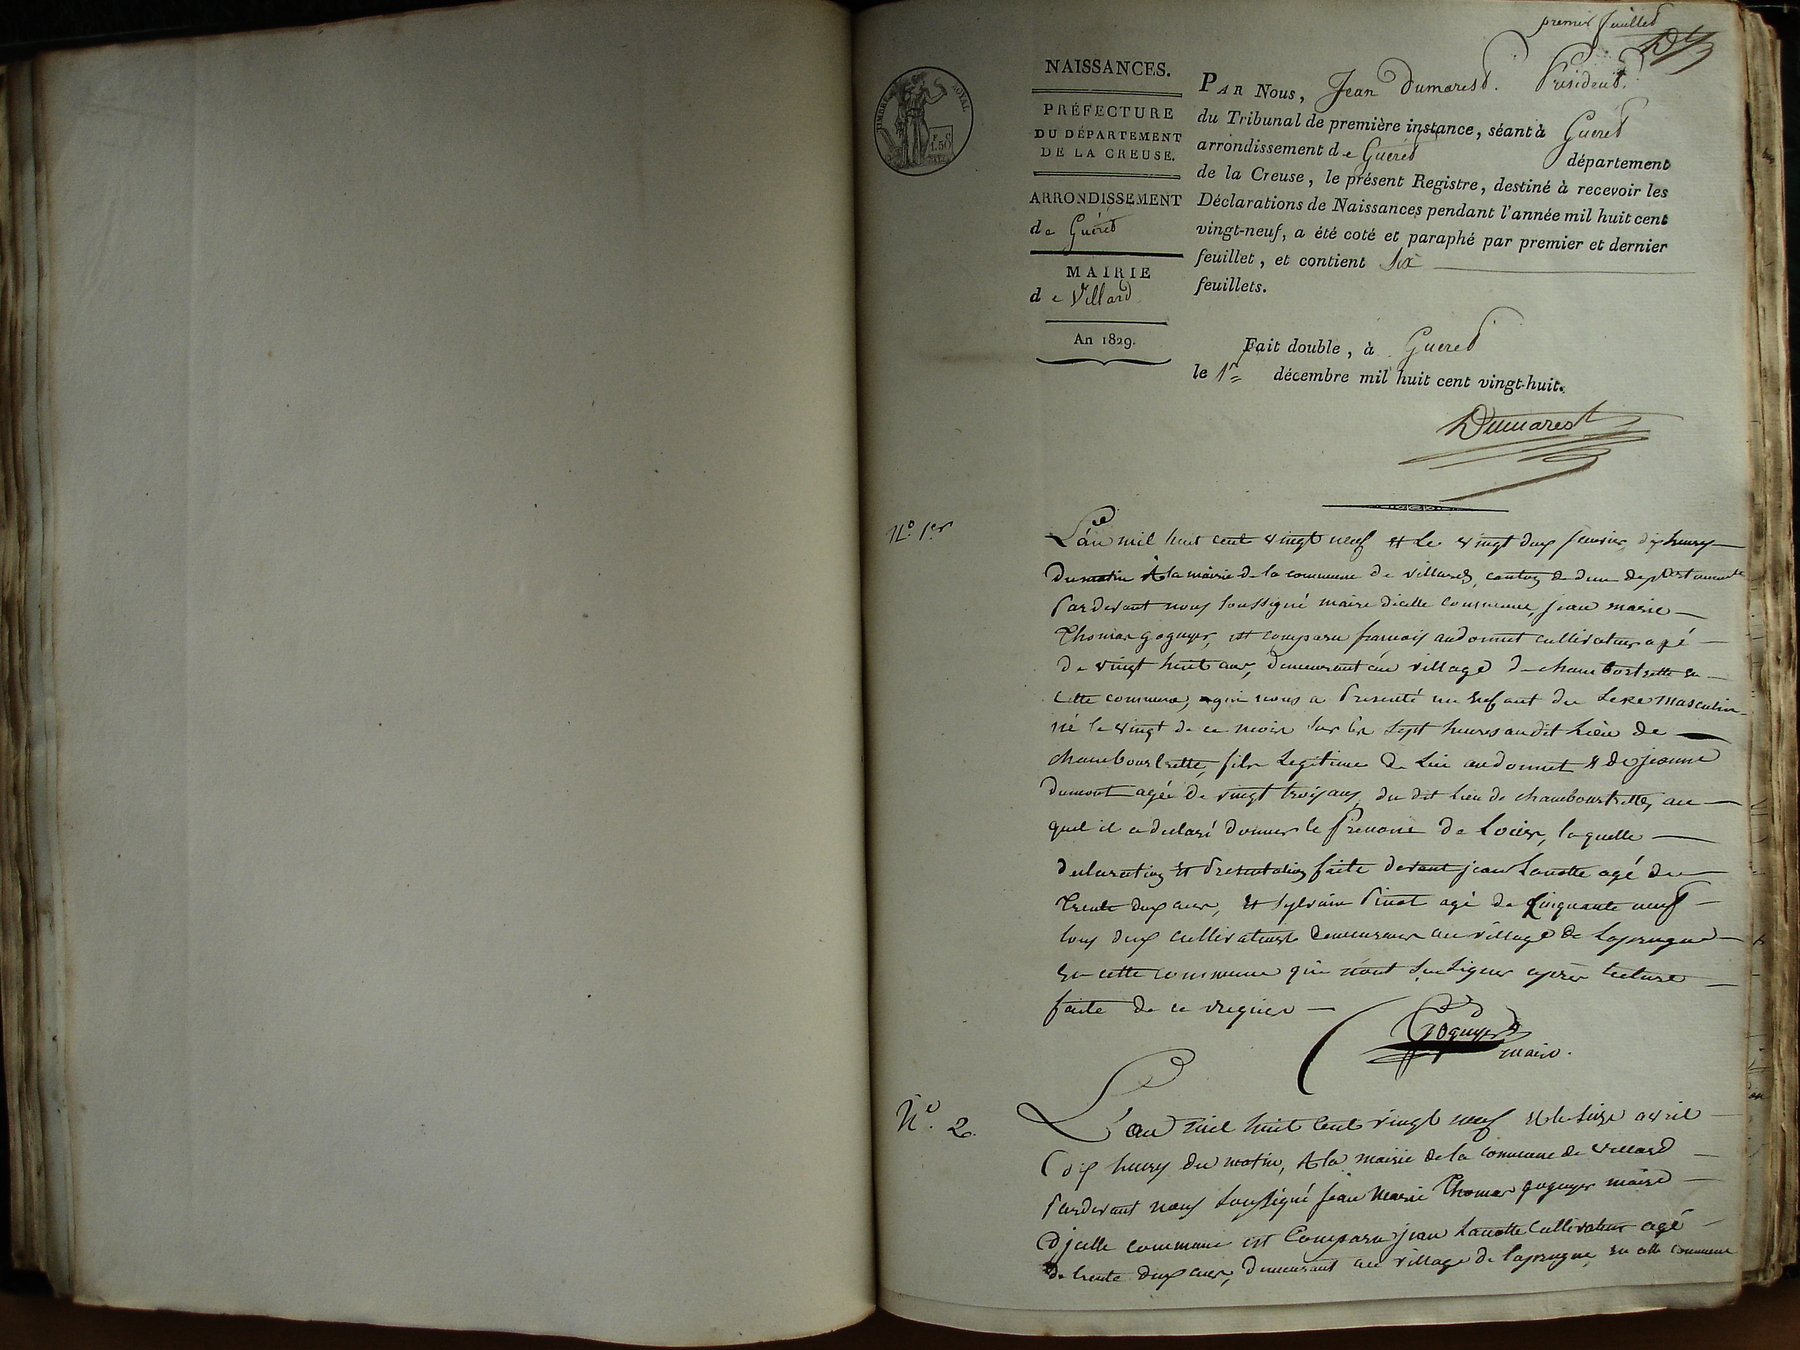 premier feuillet
NAISSANCES.
PRÉFECTURE
DU DÉPARTEMENT
DE LA CREUSE.
ARRONDISSEMENT
de Guéret
MAIRIE
de Villard
An 1829.
TIMBRE ROYAL
F. C.
1.50
PAR Nous, Jean Dumarest. Président.
du Tribunal de première instance, séant à Gueret
arrondissement de Gueret département
de la Creuse, le présent Registre, destiné à recevoir les
Déclarations de Naissances pendant l'année mil huit cent
vingt-neuf, a été coté et paraphé par premier et dernier
feuillet, et contient Six
feuillets.
Fait double, à Gueret
le 1er décembre mil huit cent vingt-huit.
Dumarest
N.o 1er
L'an mil huit cent vingt neuf et le vingt deux dix heures
du matin A la mairie de la commune de villard, canton de dun departement
Pardevant nous soussigné maire dicelle commune, jean marie
Thomas goguyer, est comparu françois andonnet cultivateur agé
de vingt huit ans, demeurant au village de chambortrette en
cette commune, qui nous a Presenté un enfant du sexe masculin
né le vingt de ce mois sur les sept heures audit lieu de
chambourtrette, fils Legitime de lui andonnet & de jeanne
dumont agée de vingt trois ans, du dit lieu de chambourtrette, au
quel il a declaré donner le Prenom de Louis, laquelle
declaration et Presentation faite devant jean Lanotte agé de
Trente deux ans, et sylvain Pinot agé de Cinquante neuf
tous deux cultivateurs demeurans au village de Laprugne
en cette commune qui n'ont su signer après lecture
faite de ce requis
Goguyer
maire.
N.o 2.
L'an mil huit cent vingt neuf et le seize avril
dix heures du matin, A la mairie de la commune de villard
Pardevant nous soussigné jean Marie Thomas goguyer maire
djcelle commune est Comparu jean Lanotte Cultivateur agé
de trente deux ans, demeurant au village de laprugne, en cette commune